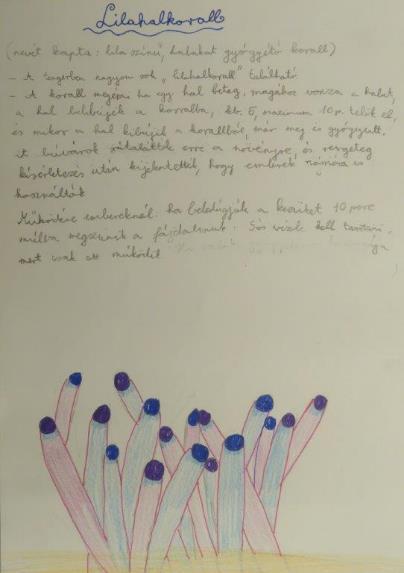 Lilahalkorall
(nevét kapta: lila színű, halakat gyógyító korall)
- A tengerben nagyon sok „lilahalkorall” található
- A korall megérzi ha egy hal beteg, magához vonzza a halat,
a hal belebújik a korallba, kb. 5, maximum 10 p. telik el,
és mikor a hal kibújik a korallból, már meg is gyógyult.
A búvárok rátaláltak erre a növényre, és rengeteg
kísérletezés után kijelentették, hogy emberek számára is
használták
Működése embereknél: ha beledugják a kezüket 10 perc
múlva megszűnik a fájdalmuk. Sós vízbe kell tartani,
mert csak ott működik